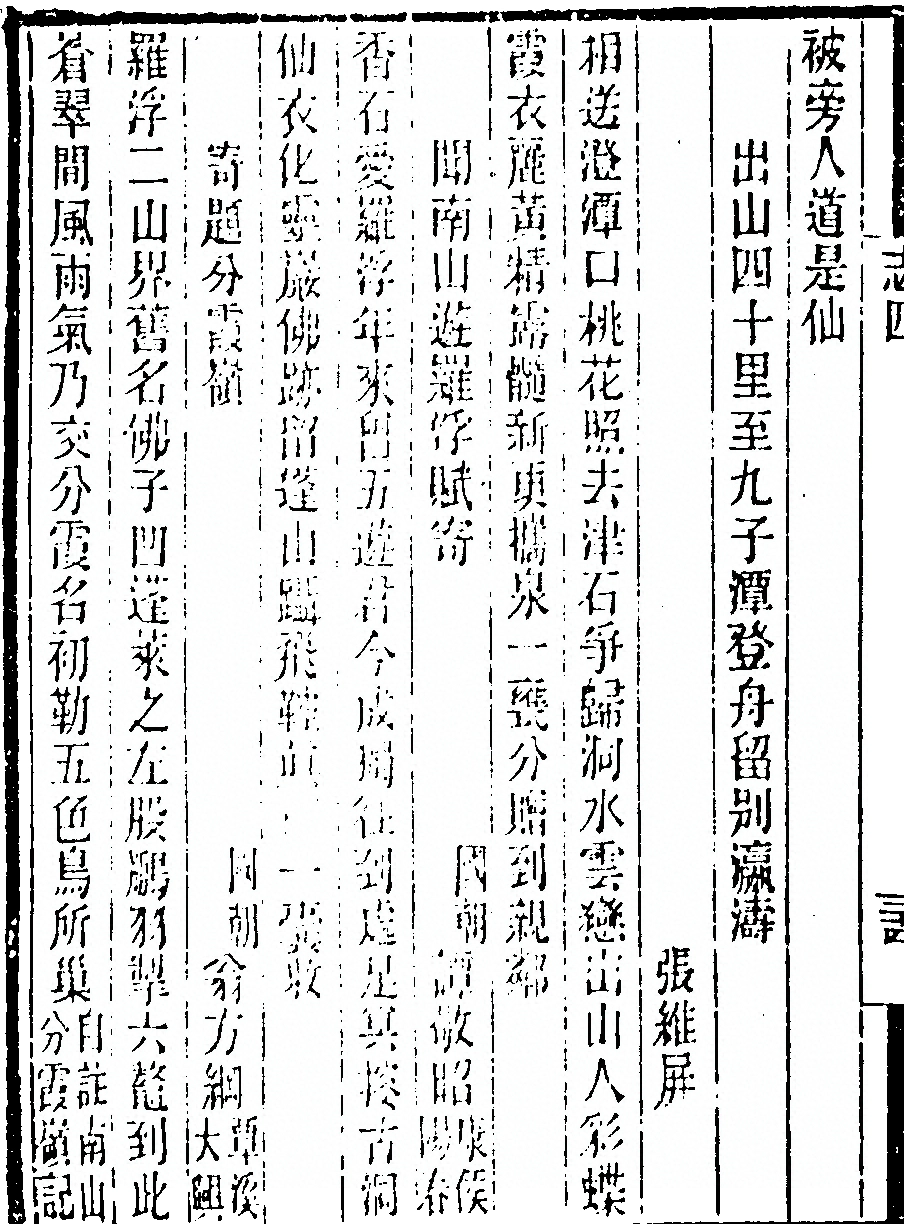 被旁人道是仙
出山四十里至九子潭登舟留別瀛濤
張維屏
相送澄潭口桃花照去津石爭歸洞水雲戀出山人彩蝶
霞衣麗黃精露髓新更攜泉一甕分贈到親鄰
聞南山遊羅浮賦寄
國朝 譚敬昭 康侯 陽春
香石愛羅浮年來曾五遊君今成獨往到處足冥搜古洞
仙衣化靈巖佛跡留蓬山躡飛鞋 一一雙收
寄題分霞嶺
國朝 翁方綱 覃溪 大興
羅浮二山界舊名佛子凹蓬萊之左股鵬羽掣六鼇到此
蒼翠間風雨氣乃交分霞名初勒五色鳥所巢 自註南山 分霞嶺記
志四